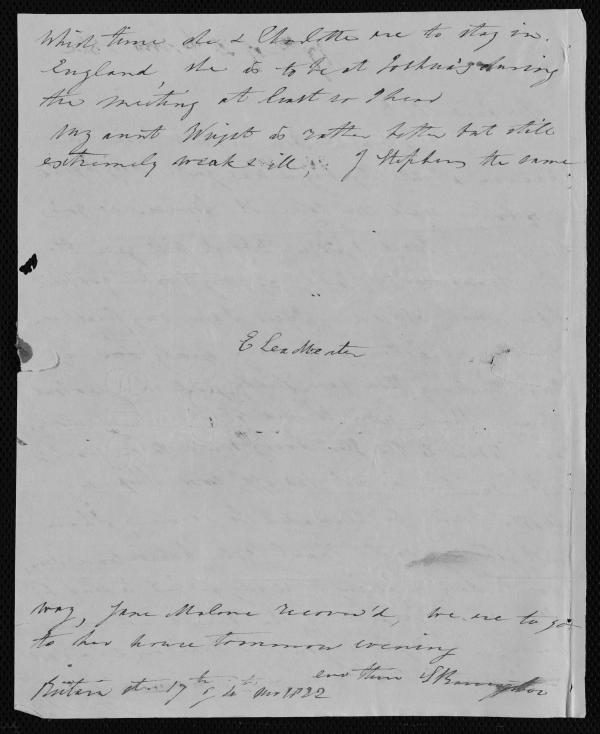 which time she & Charlotte are to stay in
England, she is to be at Joshua's during
the meeting at least so I hear
My aunt Wright is rather better but still
extremely weak & ill, J Stephens the same
E Leadbeater
way, Jane Malone recover'd, we are to go
to her house tommorow evening
ever thine S Barrington
the 17th of 4th mo 1822